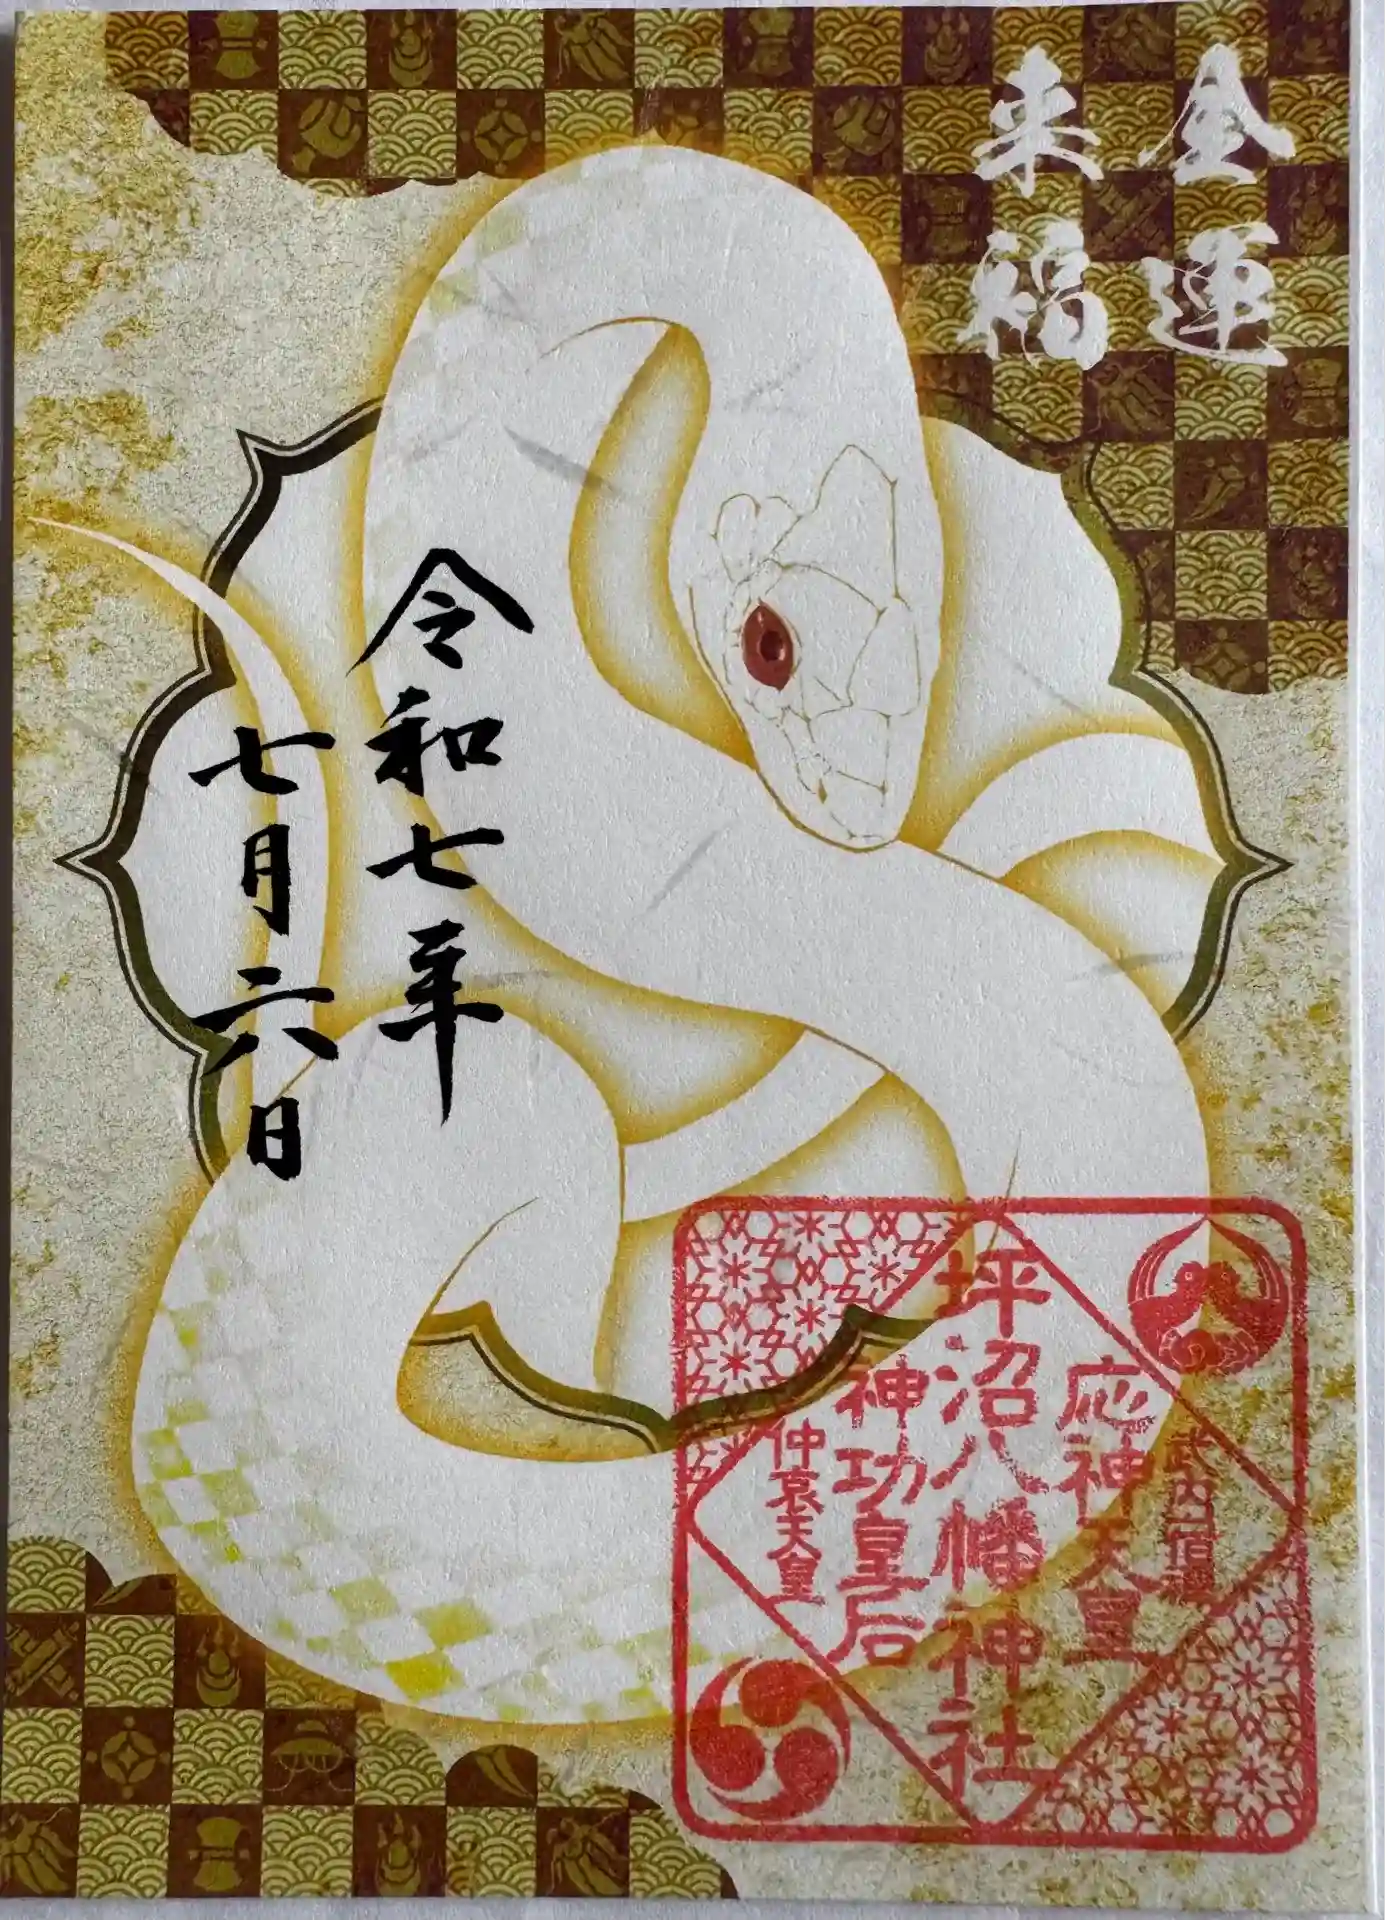 金運
来福
令和七年
七月六日
武内宿禰
応神天皇
坪沼八幡神社
神功皇后
仲哀天皇